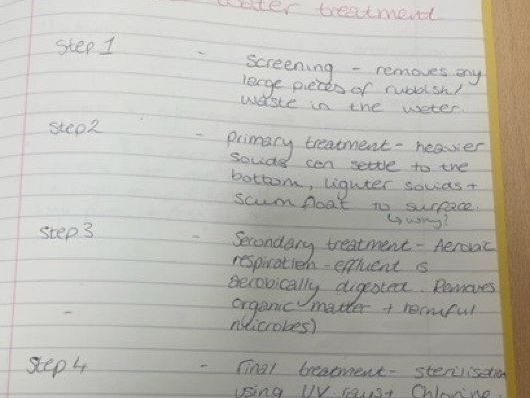 water treatment
Step 1 - Screening - removes any
large pieces of rubbish/
waste in the water.
Step 2 - primary treatment - heavier
souids can settle to the
bottom, lighter souids +
scum float to surface.
↳ why?
Step 3 - Secondary treatment - Aerobic
respiration - effluent is
aerobically digested. Removes
organic matter + harmful
microbes)
Step 4 - Final treatment - sterilisation
using UV rays + Chlorine.